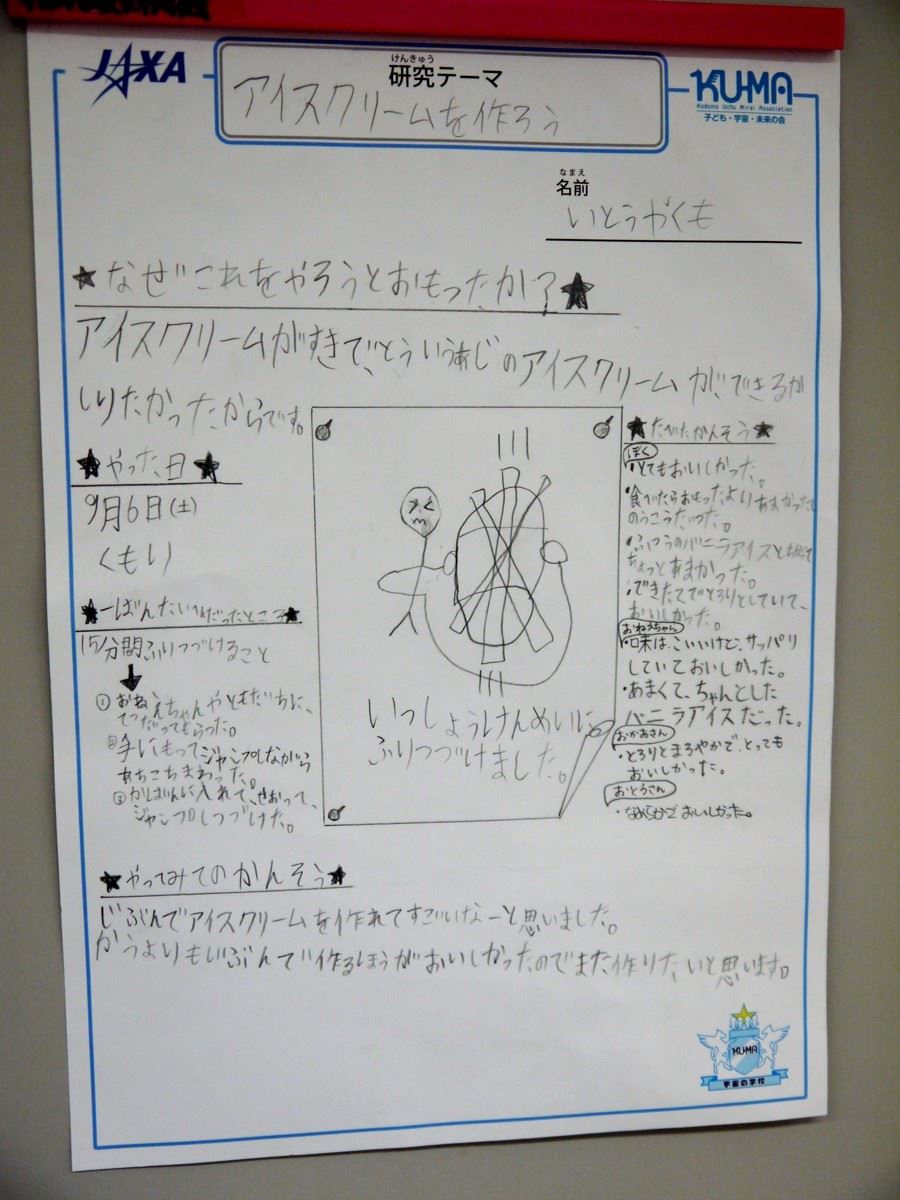 JAXA
けんきゅう
研究テーマ
アイスクリームを作ろう
KU-MA
Kodomo Uchu Mirai Association
子ども・宇宙・未来の会
なまえ
名前
いとうがくも
★なぜこれをやろうとおもったか?★
アイスクリームがすきで、どういうあじのアイスクリームができるか
しりたかったからです。
★やった日★
9月6日(土)
くもり
★一ばんたいへんだったところ★
15分間ふりつづけること
①おねえちゃんやともだちに、
てつだってもらった。
②手にもってジャンプしながら
あちこちまわった。
③かばんに入れて、せおって、
ジャンプしつづけた。
いっしょうけんめいに
ふりつづけました。
★たべたかんそう★
ぼく
・とてもおいしかった。
・食べたらおもったよりあまかった。
のうこうだった。
・ふつうのバニラアイスと
ちょっとあまかった。
・できたてでとろりとしていて、
おいしかった。
おねえちゃん
・味は、こいいけど、サッパリ
していておいしかった。
・あまくて、ちゃんとした
バニラアイスだった。
おかあさん
・とろりとまろやかで、とっても
おいしかった。
おとうさん
・なめらかでおいしかった。
★やってみてのかんそう★
じぶんでアイスクリームを作れてすごいなーと思いました。
かうよりもじぶんで作るほうがおいしかったのでまた作りたいと思います。
KU-MA
宇宙の学校